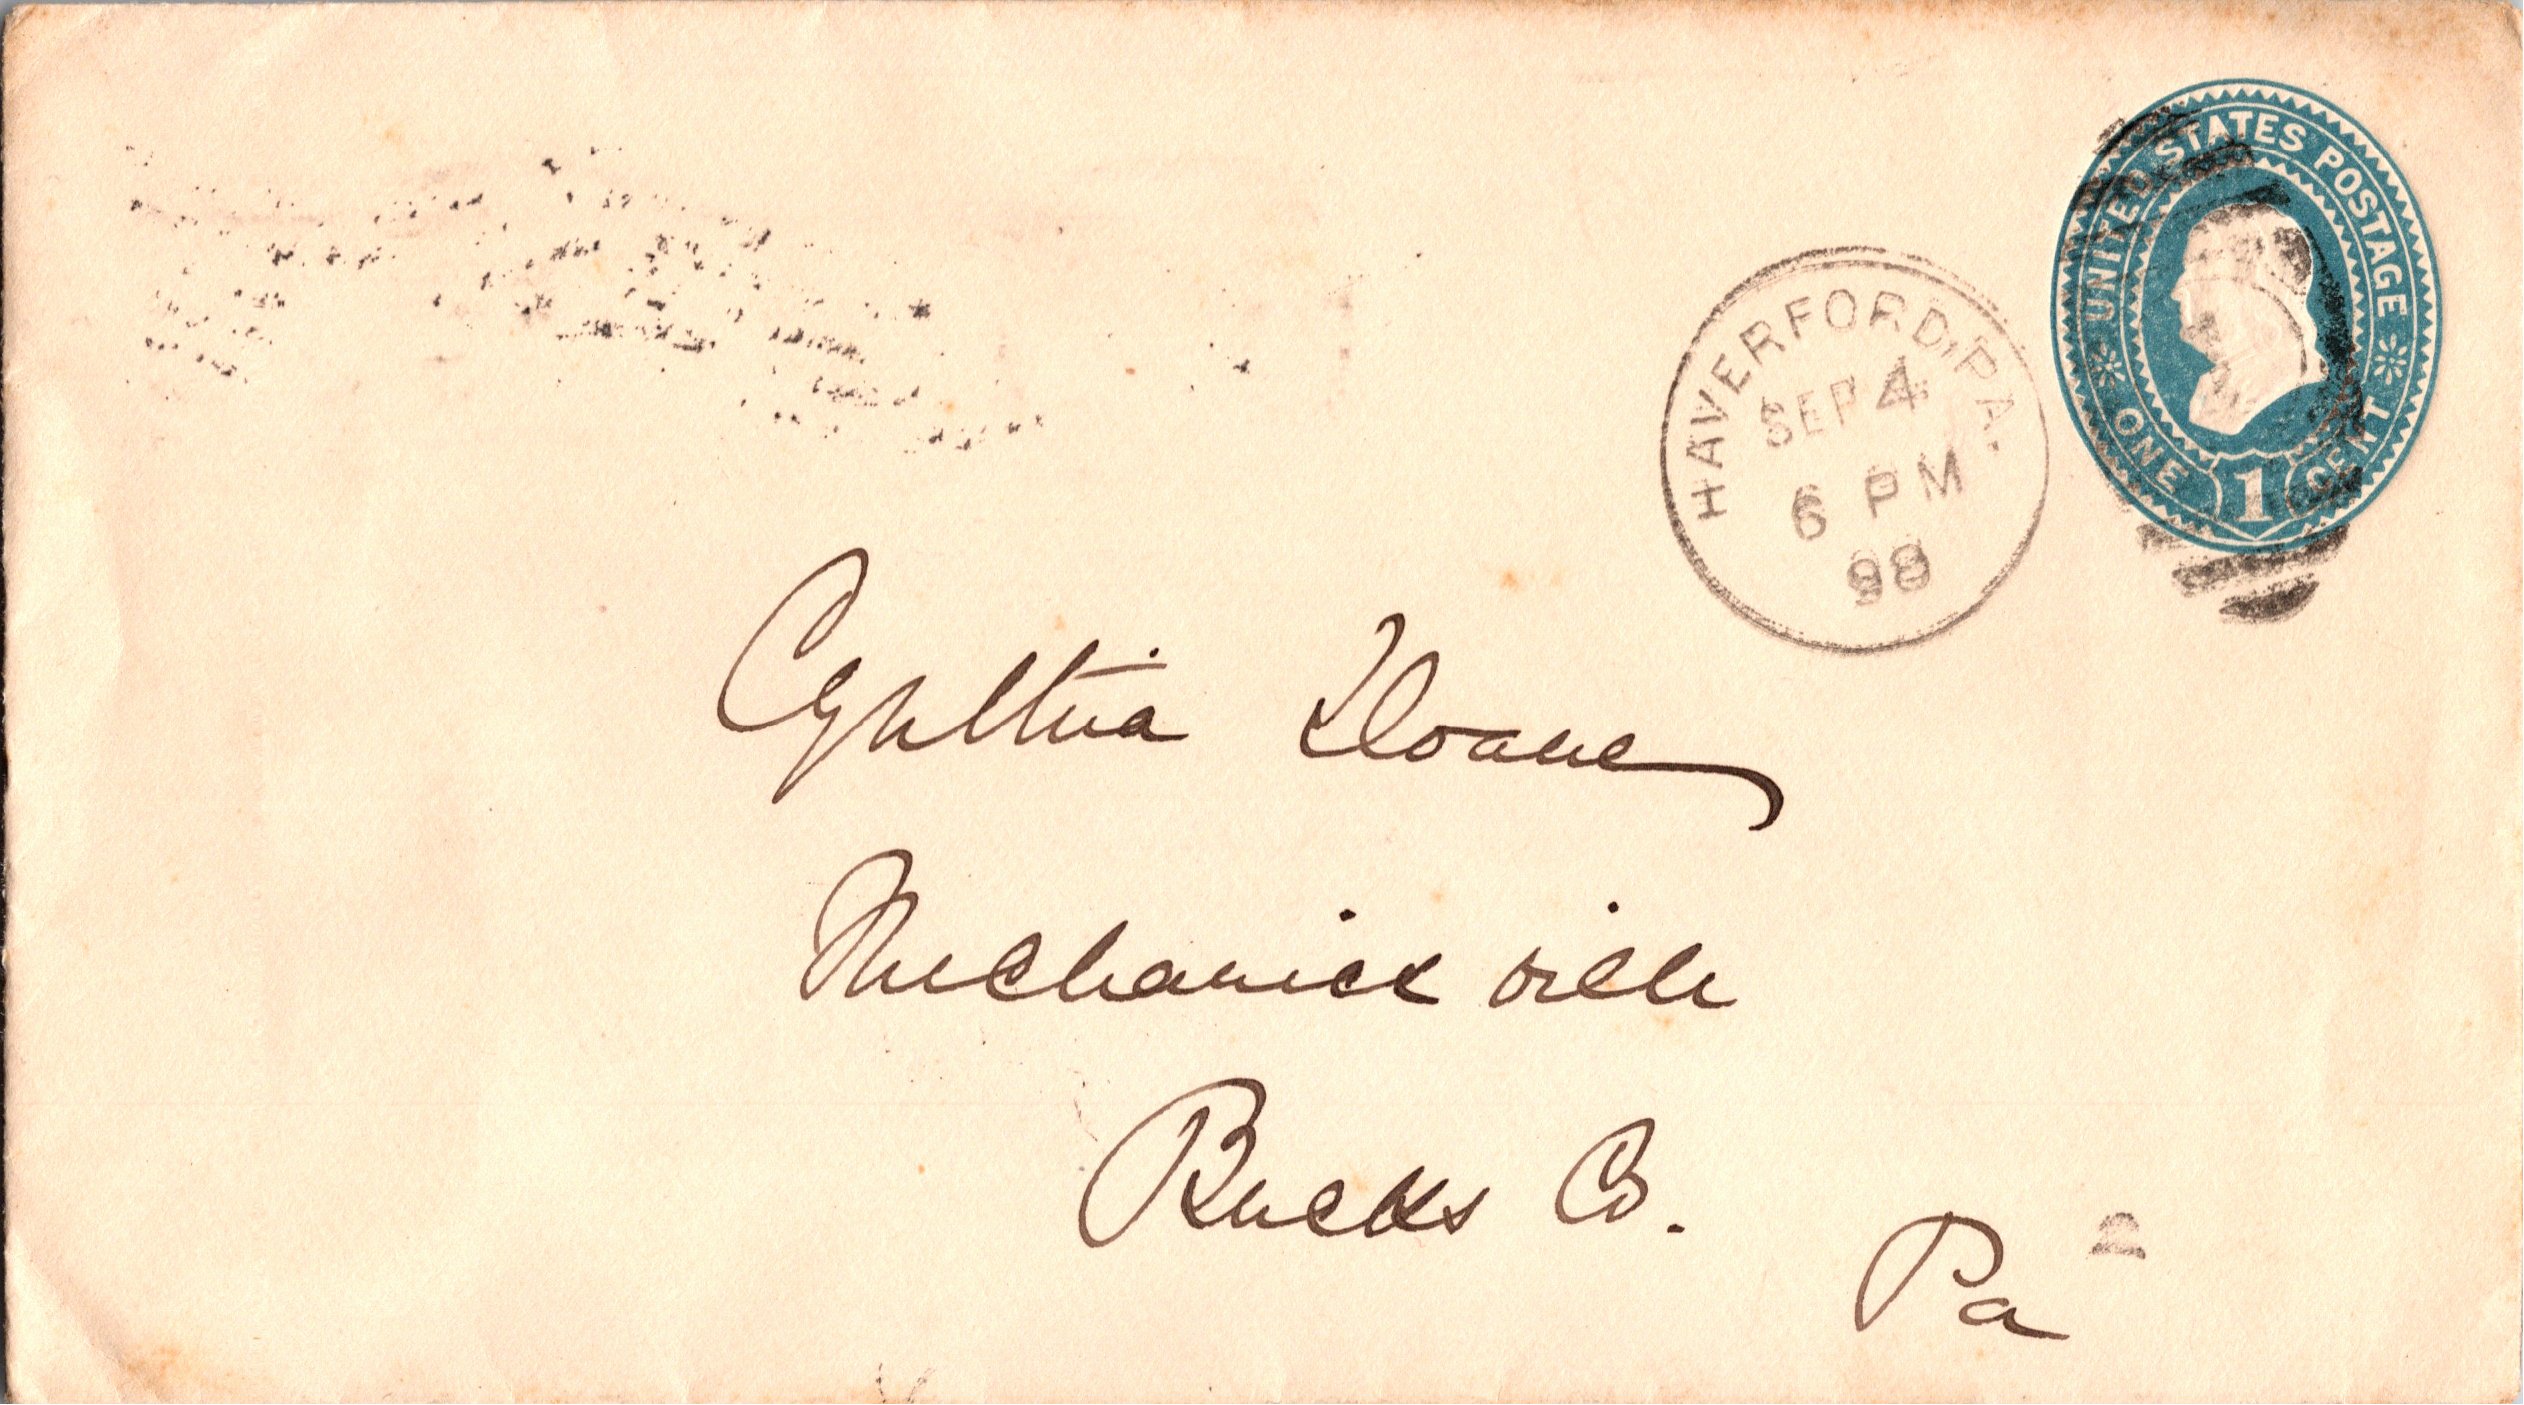 UNITED STATES POSTAGE
ONE 1 CENT
HAVERFORD, PA.
SEP 4
6 PM
98
Cynthia Doane
Mechanics ville
Bucks Co.
Pa